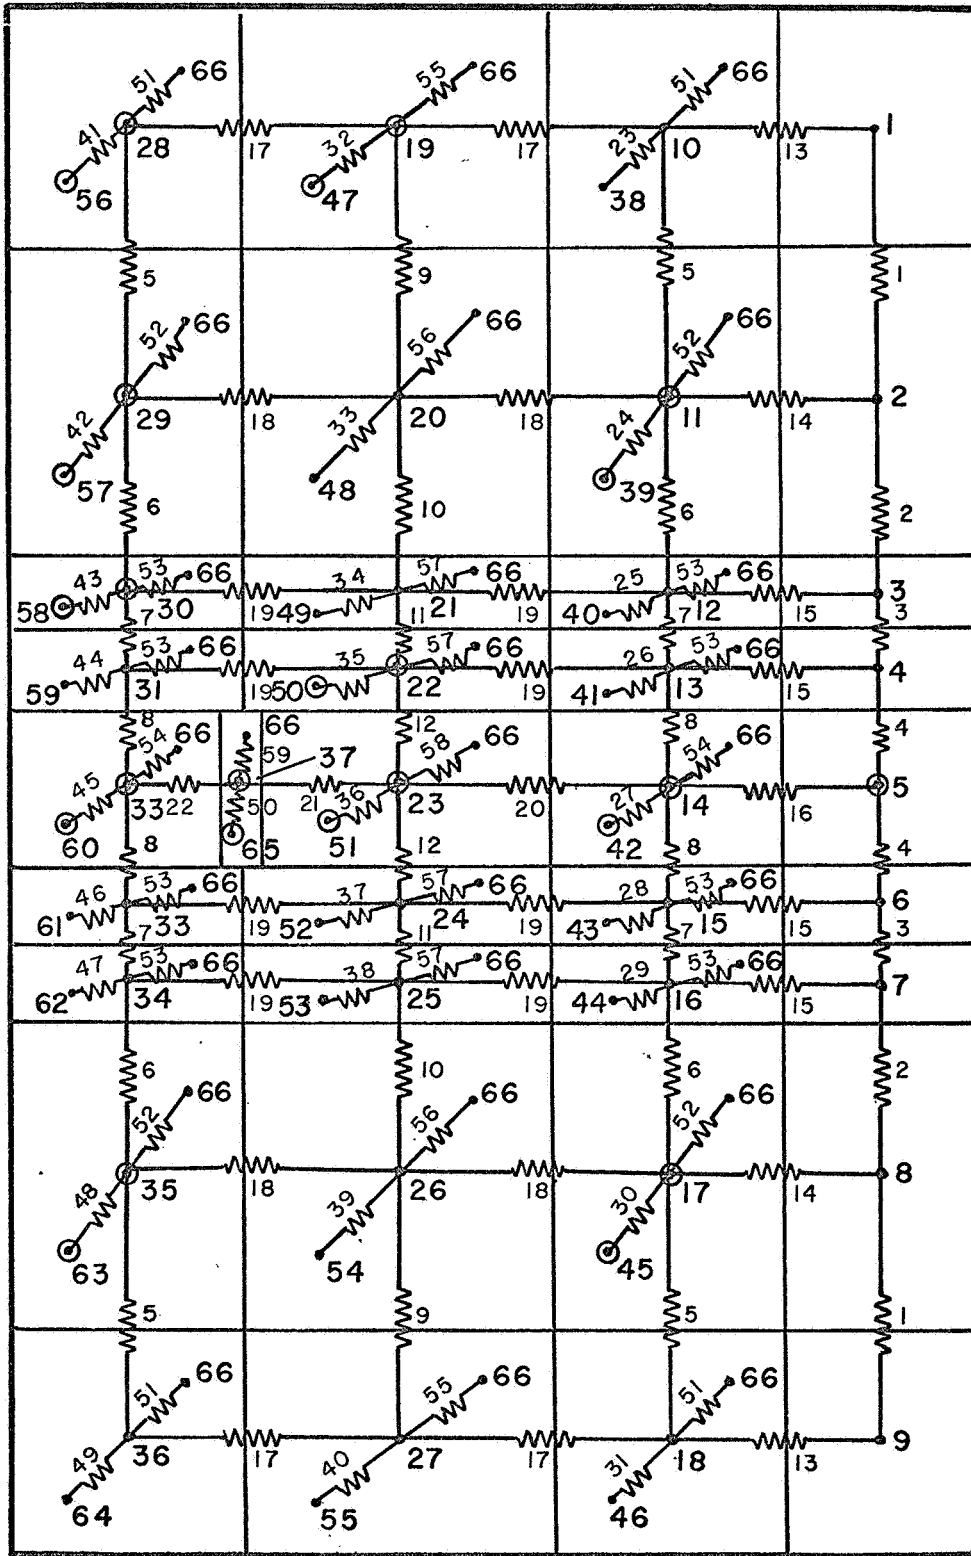 51 66 55 66 51 66
41 28 17 32 19 17 23 10 13 1
56 47 38
5 9 5 1
52 66 56 66 52 66
42 29 18 33 20 18 24 11 14 2
57 48 39
6 10 6 2
43 53 66 34 57 66 25 53 66 3
58 7 30 19 49 11 21 19 40 7 12 15 3
44 53 66 35 57 66 26 53 66 4
59 31 19 50 22 19 41 13 15
8 54 66 66 12 58 66 8 54 66 4
59 37
45 33 22 50 21 36 23 20 27 14 16 5
60 8 65 51 12 42 8 4
46 53 66 37 57 66 28 53 66 6
61 7 33 19 52 11 24 19 43 7 15 15 3
47 53 66 38 57 66 29 53 66 7
62 34 19 53 25 19 44 16 15
6 10 6 2
52 66 56 66 52 66
48 35 18 39 26 18 30 17 14 8
63 54 45
5 9 5 1
51 66 55 66 51 66
49 36 17 40 27 17 31 18 13 9
64 55 46